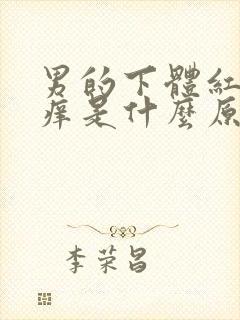 男的下體紅
痒是什麼原
李荣昌